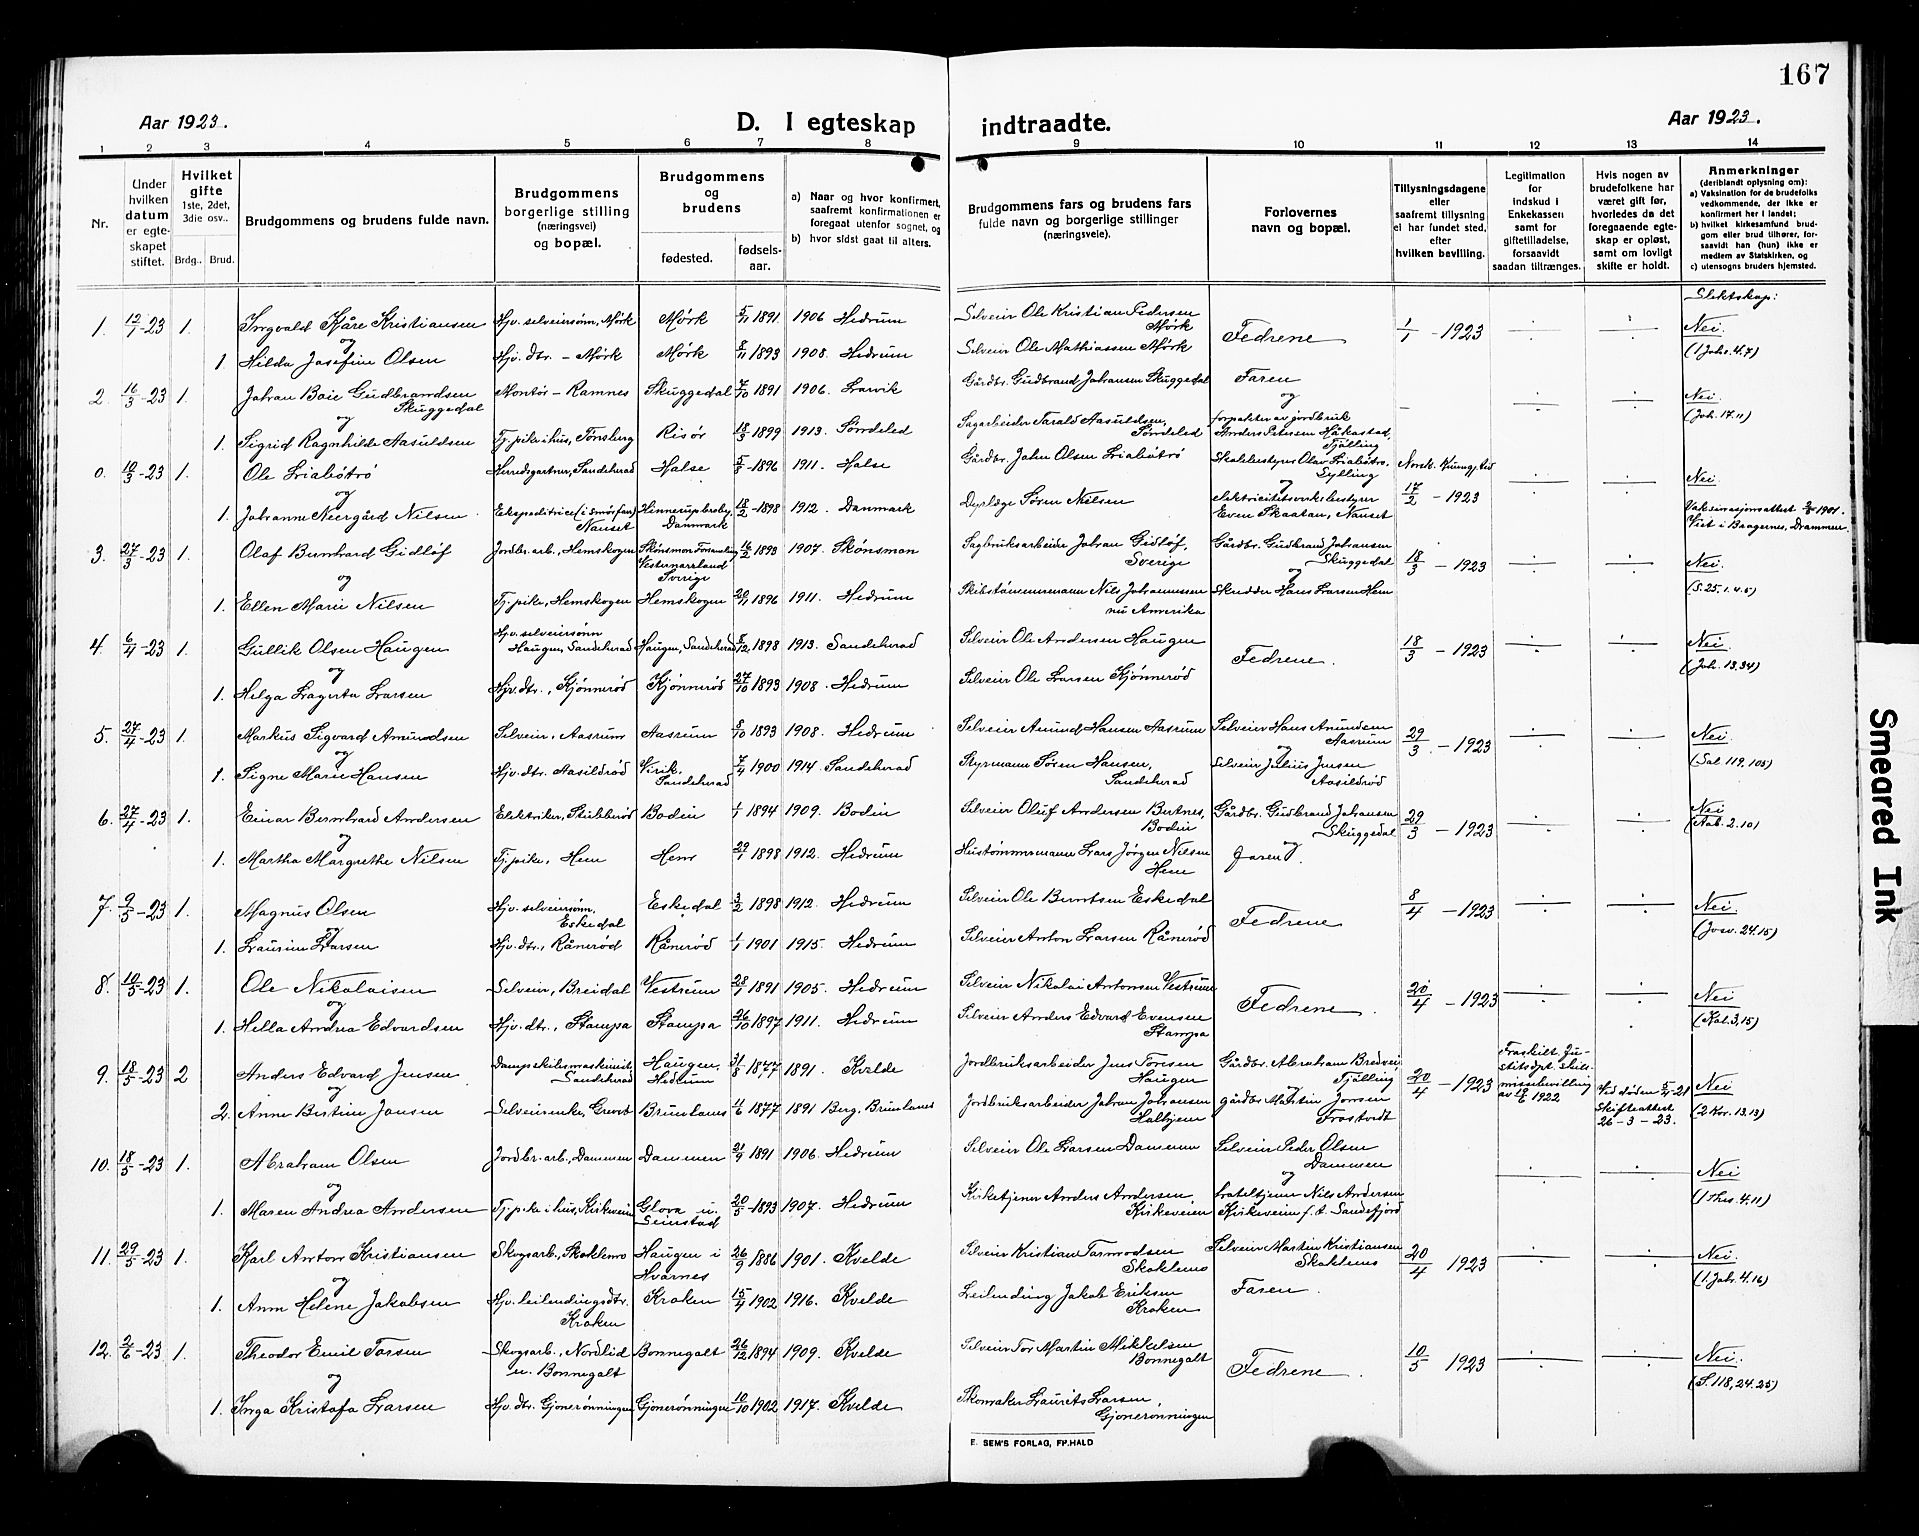 167
Aar 1923.
D. I egteskap
indtraadte.
Aar 1923.
1 2 3 4 5 6 7 8 9 10 11 12 13 14
Nr.
Under hvilken datum er egteskapet stiftet.
Hvilket gifte 1ste, 2det, 3die osv..
Brdg.. Brud.
Brudgommens og brudens fulde navn.
Brudgommens borgerlige stilling (næringsvei) og bopæl.
Brudgommens og brudens
fødested.
fødsels-aar.
a) Naar og hvor konfirmert, saafremt konfirmationen er foregaat utenfor sognet, og
b) hvor sidst gaat til alters.
Brudgommens fars og brudens fars fulde navn og borgerlige stillinger (næringsveie).
Forlovernes navn og bopæl.
Tillysningsdagene eller saafremt tillysning ei har fundet sted, efter hvilken bevilling.
Legitimation for indskud i Enkekassen samt for giftetilladelse, forsaavidt saadan tiltrænges.
Hvis nogen av brudefolkene har været gift før, hvorledes da det foregaaende egteskap er opløst, samt om lovligt skifte er holdt.
Anmerkninger (deriblandt oplysning om):
a) Vaksination for de brudefolks vedkommende, der ikke er konfirmert her i landet;
b) hvilket kirkesamfund brudgom eller brud tilhører, forsaavidt han (hun) ikke er medlem av Statskirken, og
c) utensogns bruders hjemsted.
Slektskap:
1. 12/1-23 1. Ingvald Kåre Kristiansen Hjv. selveiersønn, Mørk Mørk 5/11 1891 1906 Hedrum Selveier Ole Kristian Pedersen Mørk Fedrene 1/1 - 1923 Nei.
og
1. Hilda Josefine Olsen Hjv. dtr. - Mørk Mørk 8/11 1893 1908. Hedrum Selveier Ole Mathiassen Mørk (1 Joh. 4.7)
2. 16/3-23 1. Johan Boie Gudbrandsen Skuggedal Montør - Ramnes Skuggedal 7/10 1891 1906. Larvik Gårdbr. Gudbrand Johansen Skuggedal Faren - Nei.
og og (Joh. 17.11)
1. Sigrid Ragnhilde Aasuldsen Tj. pike i hus, Tønsberg Risør 18/3 1899 1913. Søndeled Sagarbeider Tarald Aasuldsen, Søndeled forpakter av jordbruk Anders Petersen Håkestad, Tjølling
0. 10/3-23 1. Ole Liabøtrø Herredsgartner, Sandeherad Halse 5/8-1896 1911. Halse Gårdbr. John Olsen Liabøtrø Skolebestyrer Olav Liabøtrø, Sylling Norsk Kunng.tid Nei.
og og 17/2 - 1923
1. Johanne Neergård Nilsen Ekspeditrice (i smørfor.) Nanset Hinnerup broby, Danmark 18/2-1898 1912. Danmark Dyrlæge Søren Nielsen elektricitetsverksbestyrer Even Skaatan, Nanset Vaksinasjonsattest 1901. Viet i Bragernes, Drammen
3. 27/3-23 1. Olaf Bernhard Gidlöf Jordbr. arb., Hemskogen Skönsmon Forsamling Vesternorrland Sverige 16/2 1893 1907. Skönsmon Sagbruksarbeider Johan Gidlöf, Sverige Gårdbr. Gudbrand Johansen Skuggedal 18/3 - 1923 Nei.
og og
1. Ellen Marie Nilsen Tj. pike, Hemskogen Hemskogen 20/11 1896 1911. Hedrum Skibstømmermann Nils Johannessen nu Amerika Skredder Hans Larsen Hem (S. 25.1.4.5)
4. 6/4-23 1. Gullik Olsen Haugen Hjv. selveiersønn Haugen, Sandeherad Haugen, Sandeherad 8/12 1898 1913. Sandeherad Selveier Ole Andersen Haugen Fedrene. 18/3 - 1923 Nei.
og (Joh. 13.34)
1. Helga Lagerta Larsen Hjv. dtr., Kjønnerød Kjønnerød 27/10 1893 1908. Hedrum Selveier Ole Larsen Kjønnerød
5. 27/4-23 1. Markus Sigvard Amundsen Selveier, Aasrum Aasrum 8/10 1893 1908. Hedrum Selveier Amund Hansen Aasrum Selveier Hans Amundsen Aasrum 29/3. - 1923 Nei.
og og (Sal. 119.105)
1. Signe Marie Hansen Hjv. dtr. Aasildrød Virik, Sandeherad 7/4 1900 1914. Sandeherad Styrmann Søren Hansen, Sandeherad Selveier Julius Jensen Aasildrød
6. 27/4-23 1. Einar Bernhard Andersen Elektriker, Stubberød Bodin 1/1 1894 1909. Bodin Selveier Oluf Andersen Bertnes, Bodin Gårdbr. Gudbrand Johansen Skuggedal 29/3 - 1923 Nei
og og (Aab. 2.10)
1. Martha Margrethe Nilsen Tj. pike, Hem Hem 29/1 1898 1912. Hedrum Hustømmermann Lars Jørgen Nilsen Hem Faren
7. 9/5-23 1. Magnus Olsen Hjv. selveiersønn, Eskedal Eskedal 3/2 1898 1912. Hedrum Selveier Ole Berntsen Eskedal Fedrene 8/4 - 1923 Nei.
og (Josv. 24.15)
1. Laurine Larsen Hjv. dtr., Rånerød Rånerød 1/1 1901 1915. Hedrum Selveier Anton Larsen Rånerød
8. 10/5-23 1. Ole Nikolaisen Selveier, Breidal Vestrum 28/1 1891 1905. Hedrum Selveier Nikolai Antonsen Vestrum Fedrene. 20/4 - 1923 Nei
og (Kol. 3,15)
1. Hella Andrea Edvardsen Hjv. dtr., Stampa Stampa 26/10 1897 1911. Hedrum Selveier Anders Edvard Evensen Stampa
9. 18/5-23 2 Anders Edvard Jensen Dampskibsmaskinist, Sandeherad Haugen, Hedrum 31/8 1877 1891. Kvelde Jordbruksarbeider Jens Torsen Haugen Gårdbr. Abraham Bredvei, Tjølling 20/4 - 1923 Fraskilt Justitsdpt. skilsmissebevilling av 1922 Ved døden 5/4-21 Skifteattest 26-3-23. Nei
og og (2 Kor. 13.13)
2. Anne Bertine Jonsen Selveierenke, Grevet Brunlanes 11/6 1877 1891 Berg, Brunlanes Jordbruksarbeider Johan Johansen Holhjem gårdbr. Martin Jonsen Frostvedt
10. 18/5-23 1. Abraham Olsen Jordbr. arb., Dammen Dammen 21/9 1891 1906. Hedrum Selveier Ole Larsen Dammen Selveier Peder Olsen Dammen Nei
og og (1 Thes. 4.11)
1. Maren Andrea Andersen Tj. pike i hus, Kirkeveien Glova u. Seierstad 20/5 1893 1907. Hedrum Kirketjener Anders Andersen, Kirkeveien hoteltjener Nils Andersen Kirkeveien f. t. Sandefjord
11. 29/5-23 1. Karl Anton Kristiansen Skogsarb., Skoklemo Haugen i Hvarnes 26/9 1886 1901. Kvelde Selveier Kristian Tarmodsen Skoklemo Selveier Martin Kristiansen Skoklemo 20/4 1923 Nei.
og (1 Joh. 4.16)
1. Anne Helene Jakobsen Hjv. leilendingsdtr. Kroken Kroken 15/4 1902 1916. Kvelde Leilending Jakob Eriksen Kroken Faren.
12. 2/6-23 1. Theodor Emil Torsen Skogsarb., Nordlid u. Bonnegolt Bonnegolt 26/12 1894 1909. Kvelde Selveier Tor Martin Mikkelsen Bonnegolt Fedrene. 10/5 1923 Nei.
og (S. 118, 24.25)
1. Inga Kristofa Larsen Hjv. dtr. Gjonerønningen Gjonerønningen 10/10 1902 1917. Kvelde Skomaker Laurits Larsen, Gjonerønningen
E. SEM'S FORLAG, FR.HALD
Smeared Ink